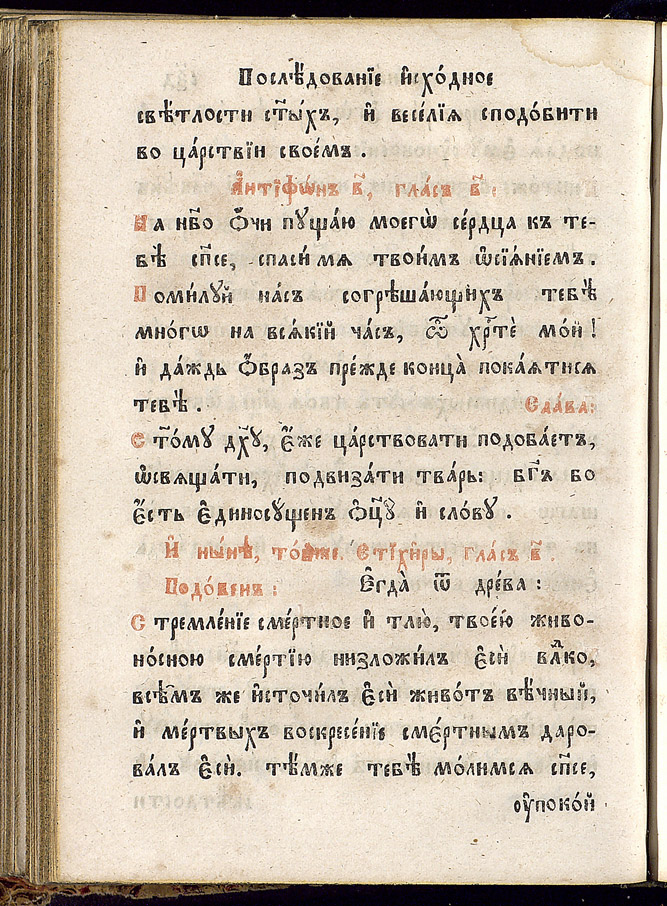 Послѣ́дованїе и҆схо́дное
свѣ́тлости ст҃ы́хъ, и҆ весе́лїѧ сподо́бити
во ца́рствїи свое́мъ.
А҆нтїфѡ́нъ в҃, гла́съ в҃:
На нб҃о ѻ҆́чи пꙋща́ю моегѡ̀ се́рдца къ те-
бѣ̀ сп҃се, спаси́ мѧ твои́мъ ѡ҆сїѧ́нїемъ.
Поми́лꙋй на́съ согрѣша́ющихъ тебѣ̀
мно́гѡ на всѧ́кїй ча́съ, ѽ хр҃тѐ мой!
и҆ да́ждь ѻ҆́бразъ пре́жде конца̀ пока́ѧтисѧ
тебѣ̀. Сла́ва:
Ст҃о́мꙋ дх҃ꙋ, є҆́же ца́рствовати подоба́етъ,
ѡ҆свѧща́ти, подвиза́ти тва́рь: бг҃ъ бо
є҆́сть є҆диносꙋ́щенъ ѻ҆ц҃ꙋ̀ и҆ сло́вꙋ.
И҆ ны́нѣ, то́йже. Стїхи̑ры, гла́съ в҃.
Подо́бенъ: Є҆гда̀ ѿ дре́ва:
Стремле́нїе сме́ртное и҆ тлю̀, твое́ю живо-
но́сною сме́ртїю низложи́лъ є҆сѝ вл҃ко,
всѣ̑мъ же и҆сточи́лъ є҆сѝ живо́тъ вѣ́чный,
и҆ ме́ртвыхъ воскресе́нїе сме́ртнымъ даро-
ва́лъ є҆сѝ. тѣ́мже тебѣ̀ мо́лимсѧ сп҃се,
оу҆поко́й